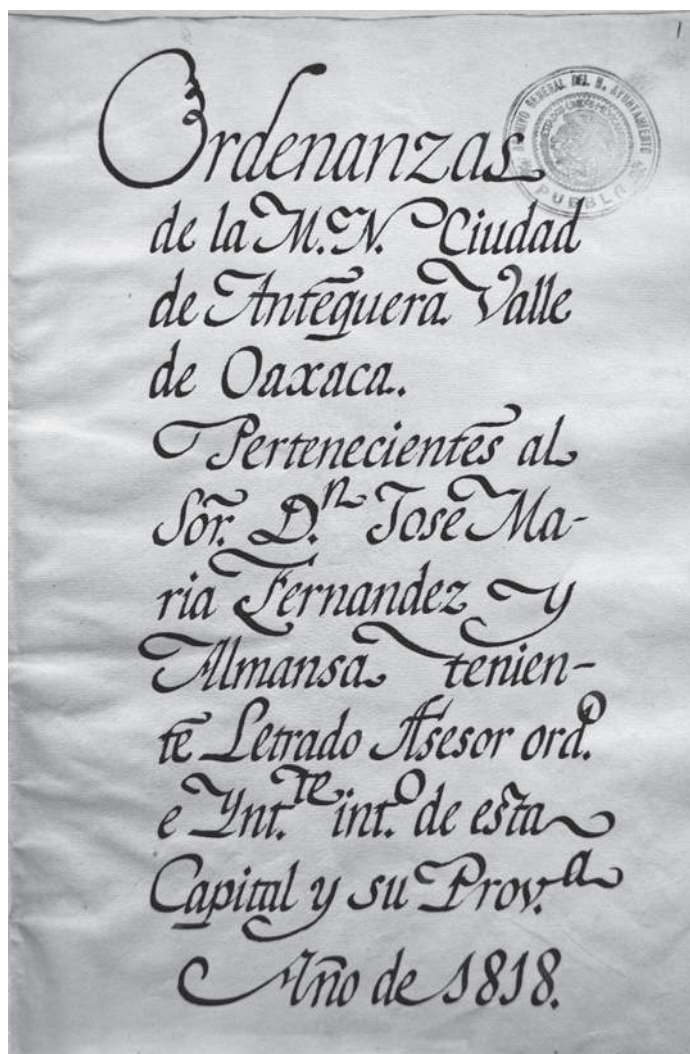 1
Ordenanzas
de la M. N. Ciudad
de Antequera Valle
de Oaxaca.
Pertenecientes al
Sor. D.n Jose Ma-
ria Fernandez y
Almansa tenien-
te Letrado Asesor ord.o
e Ynt.te int.o de esta
Capital y su Prov.a
Año de 1818.
ARCHIVO GENERAL DEL H. AYUNTAMIENTO
PUEBLA